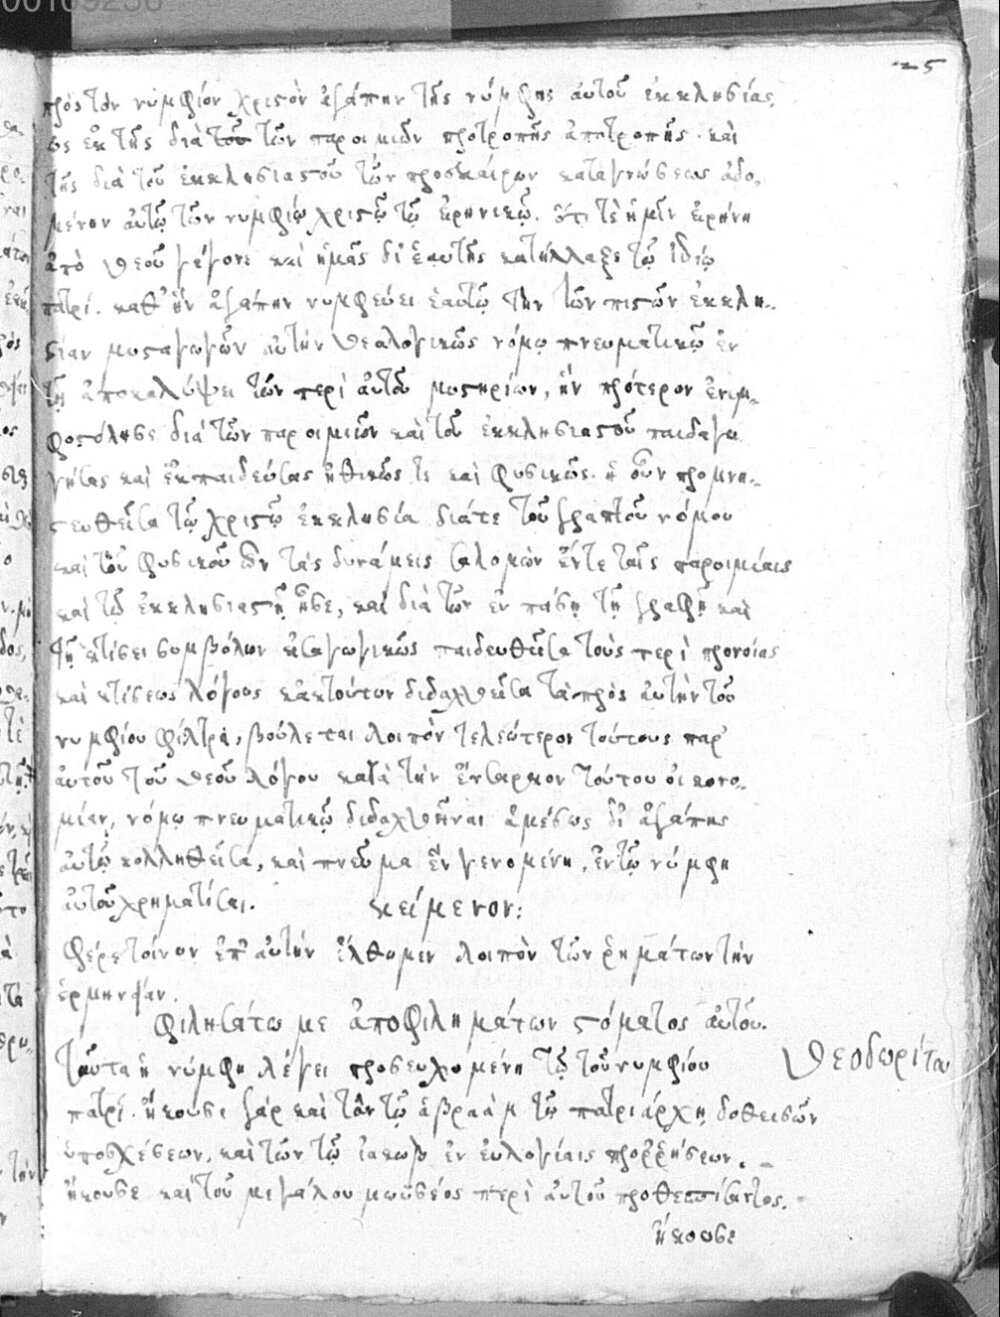 00169256
25
πρὸς τὸν νυμφίον χριστὸν ἀγάπην τῆς νύμφης αὐτοῦ ἐκκλησίας,
ὡς ἐκ τῆς διὰ τοῦ τῶν παροιμιῶν προτροπῆς ἀποτροπῆς· καὶ
τῆς διὰ τοῦ ἐκκλησιαστοῦ τῶν προσκαίρων καταγνώσεως ἀδο-
μένην αὐτῷ τῶν νυμφίῳ χριστῷ τῷ εἰρηνικῷ. ὅτι τὲ ἡμῖν εἰρήνη
ἀπὸ θεοῦ γέγονε καὶ ἡμᾶς δι' ἑαυτῆς κατήλλαξε τῷ ἰδίῳ
πατρί. καθ' ἣν ἀγάπην νυμφεύει ἑαυτῷ τὴν τῶν πιστῶν ἐκκλη-
σίαν μυσταγωγῶν αὐτὴν θεολογικῶς νόμῳ πνευματικῷ ἐν
τῇ ἀποκαλύψει τῶν περὶ αὐτοῦ μυστηρίων, ἣν πρότερον ἐνυμ-
φοστόλησε διὰ τῶν παροιμιῶν καὶ τοῦ ἐκκλησιαστοῦ παιδαγω
γήσας καὶ ἐκπαιδεύσας ἠθικῶς τε καὶ φυσικῶς. ἡ οὖν προμνη-
στευθεῖσα τῷ χριστῷ ἐκκλησία διάτε τοῦ γραπτοῦ νόμου
καὶ τοῦ φυσικοῦ ὧν τὰς δυνάμεις σαλομὼν ἔντε ταῖς παροιμίαις
καὶ τῷ ἐκκλησιαστῇ ᾖσε, καὶ διὰ τῶν ἐν πάσῃ τῇ γραφῇ καὶ
τῇ κτίσει συμβόλων εἰσαγωγικῶς παιδευθεῖσα τοὺς περὶ προνοίας
καὶ κτίσεως λόγους κἀκ τούτων διδαχθεῖσα τὰ πρὸς αὐτὴν τοῦ
νυμφίου φίλτρα, βούλεται λοιπὸν τελεώτερον τούτους παρ'
αὐτοῦ τοῦ θεοῦ λόγου κατὰ τὴν ἔνσαρκον τούτου οἰκονο-
μίαν, νόμῳ πνευματικῷ διδαχθῆναι ἀμέσως δι' ἀγάπης
αὐτῷ κολληθεῖσα, καὶ πνεῦμα ἓν γενομένη, ἐν τῷ νύμφη
αὐτοῦ χρηματίσαι. κείμενον:
Φέρε τοίνυν ἐπ' αὐτὴν ἔλθωμεν λοιπὸν τῶν ῥημάτων τὴν
ἑρμηνείαν.
φιλησάτω με ἀπὸ φιλημάτων στόματος αὐτοῦ.
Ταῦτα ἡ νύμφη λέγει προσευχομένη τῷ τοῦ νυμφίου
Θεοδωρίτου
πατρί. ἤκουσε γὰρ καὶ τῶν τῷ ἀβραὰμ τῷ πατριάρχῃ δοθεισῶν
ὑποσχέσεων, καὶ τῶν τῷ ἰακὼβ ἐν εὐλογίαις προῤῥήσεων.
ἤκουσε καὶ τοῦ μεγάλου μωϋσέος περὶ αὐτοῦ προθεσπίσαντος.
ἤκουσε